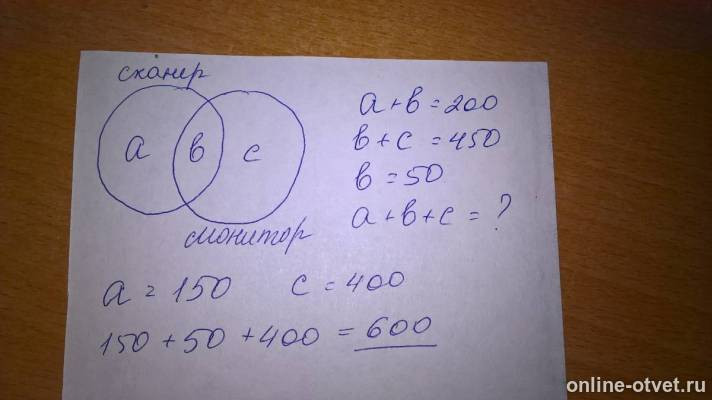 сканер
a в с
монитор
a + в = 200
в + с = 450
в = 50
a + в + с = ?
a = 150 с = 400
150 + 50 + 400 = 600
online-otvet.ru